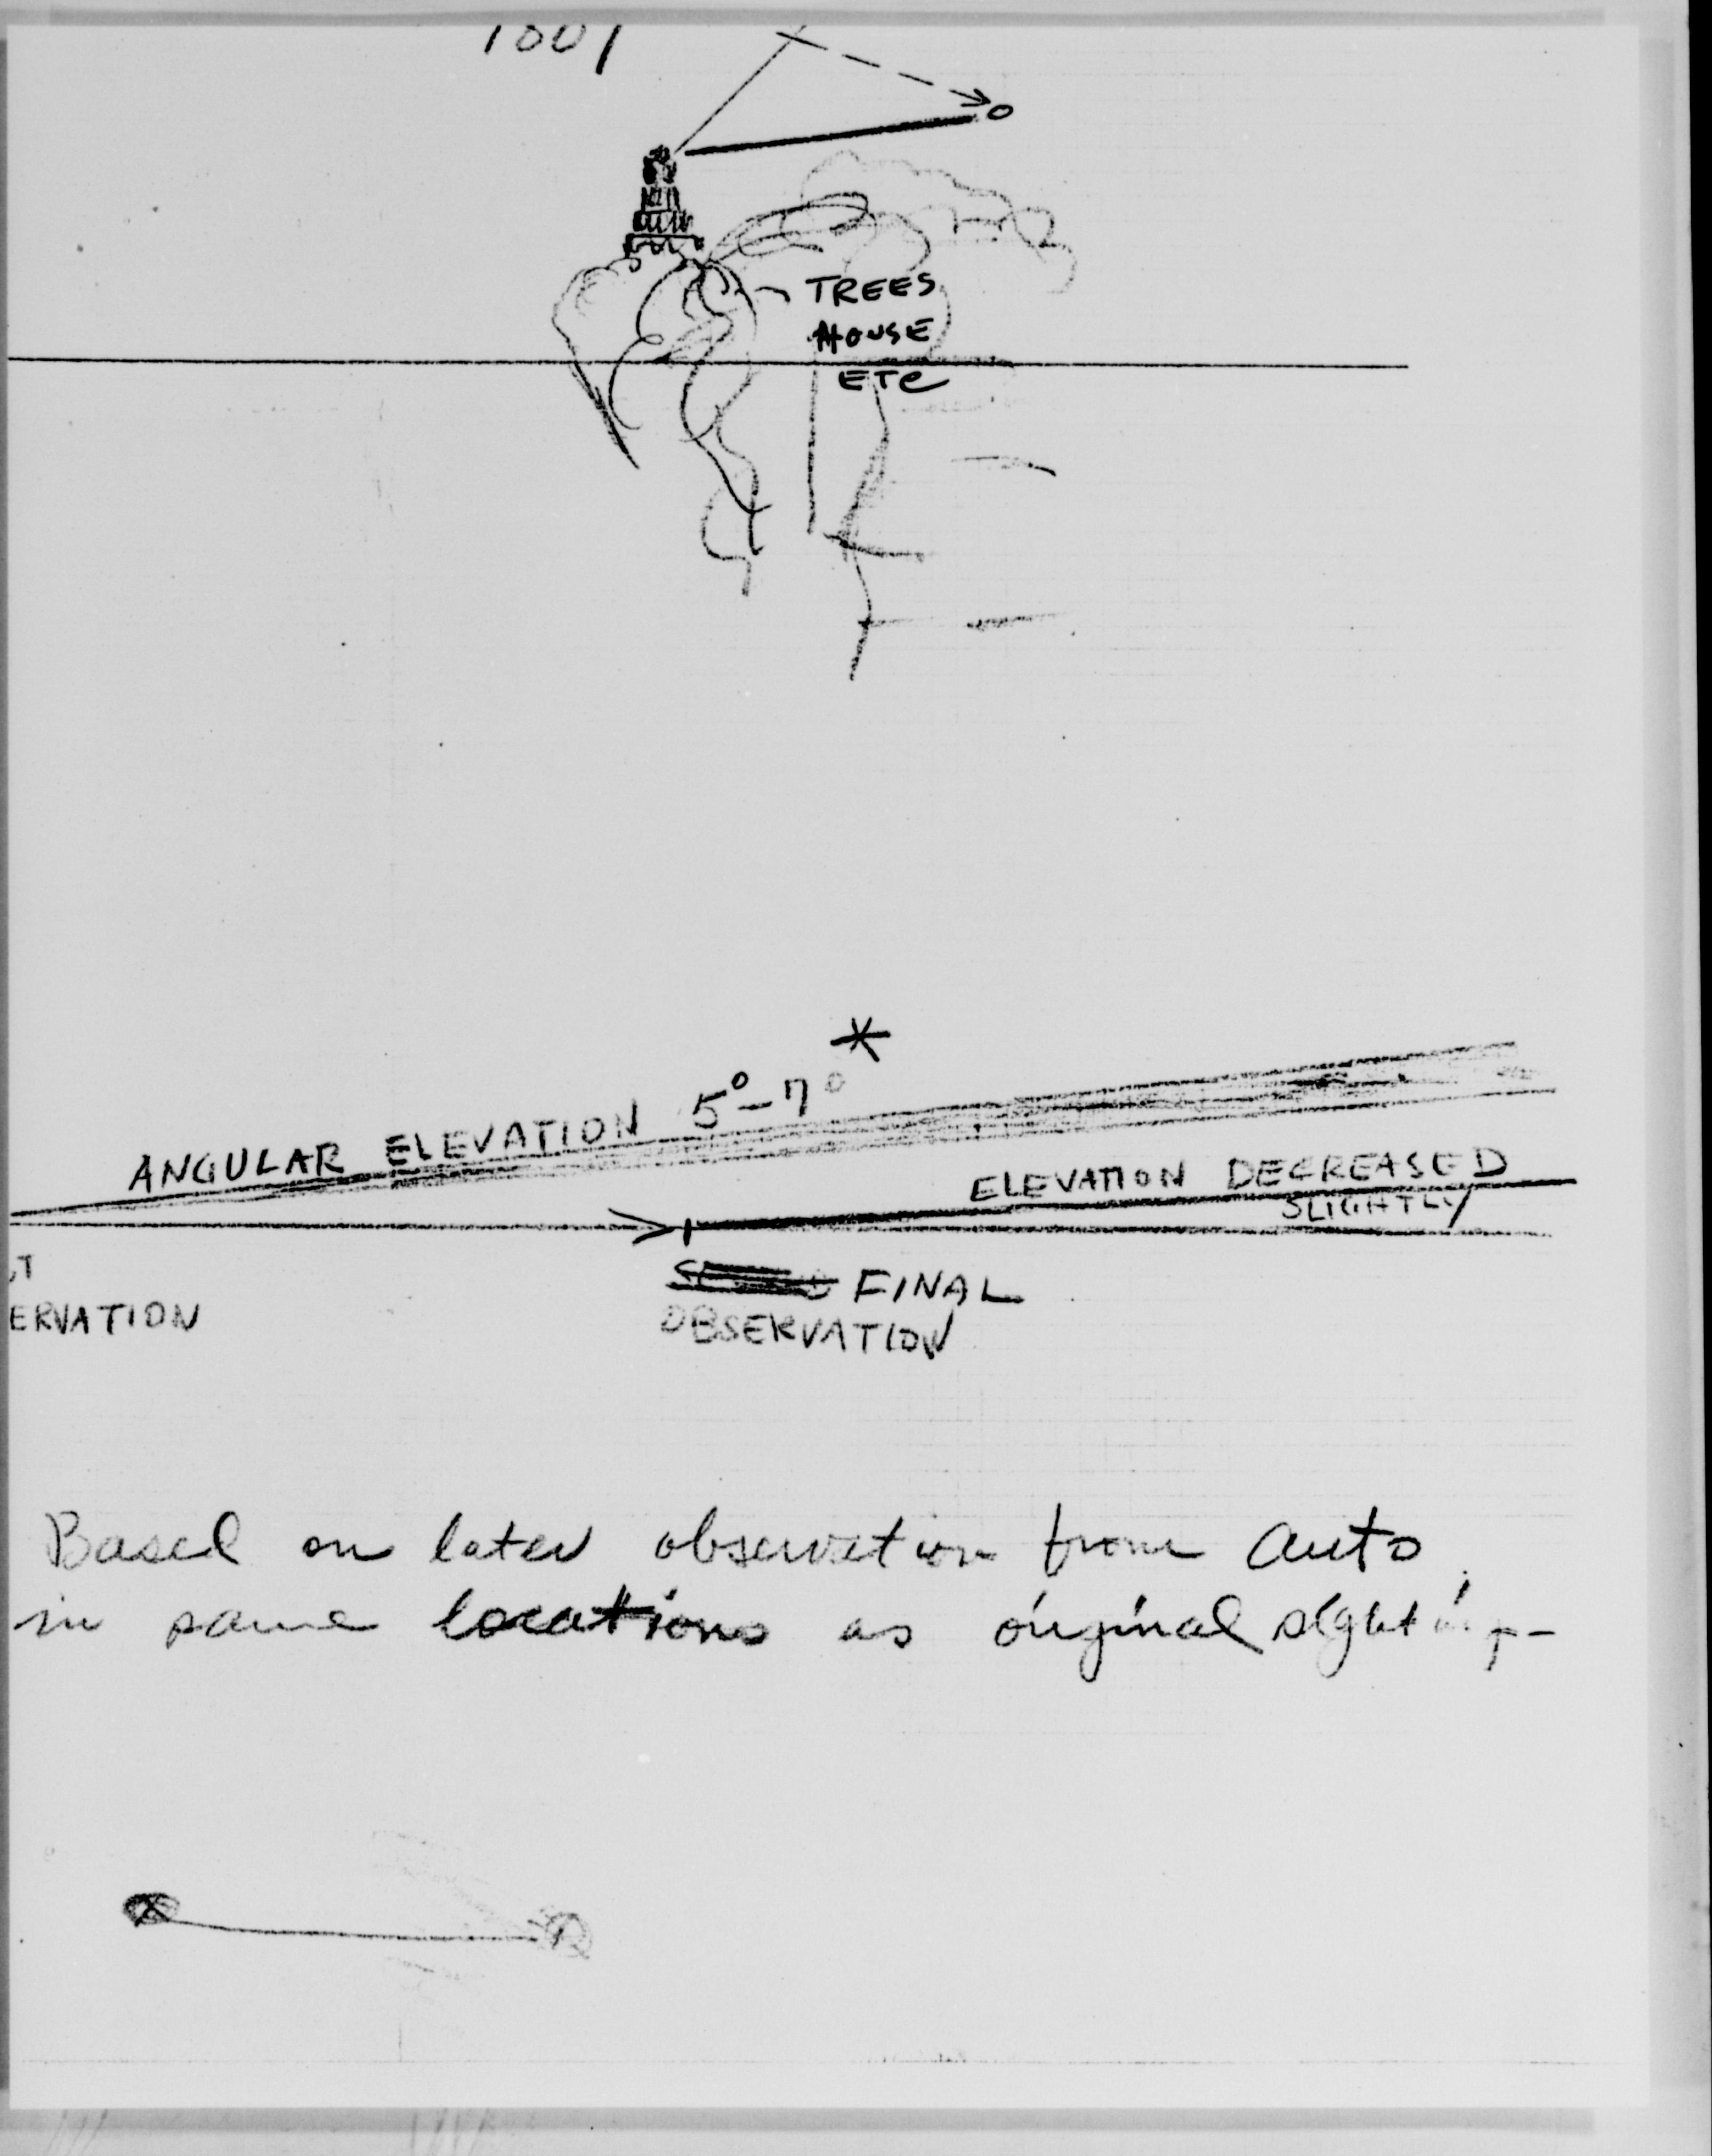 TREES
HOUSE
ETC
*
ANGULAR ELEVATION 5°-7°
ELEVATION DECREASED
SLIGHTLY
FINAL
ERVATION
OBSERVATION
Based on later observation from auto
in same locations as original sighting-